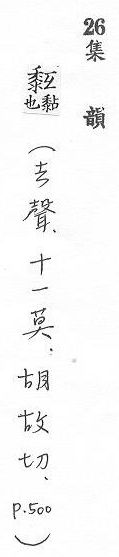 26 集韻
黏也
(去聲、十一莫、胡故切、p.500)